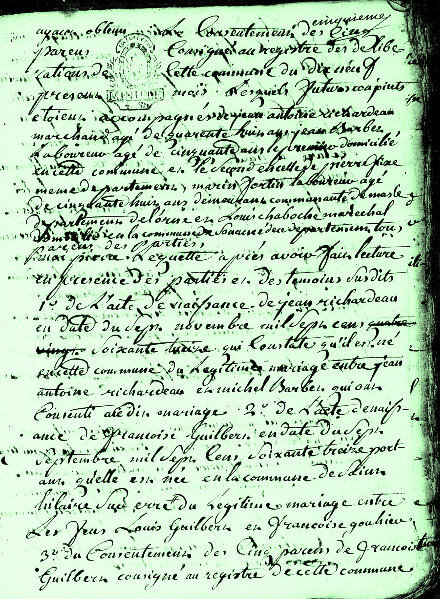 ayant obtenu le Consentement des cinquieme Cinq
parens Consigné au registre des delibe
rations de Cette commune du dix neuf
present mois. Lesquels futurs conjoints
etoient accompagnés de jean antoine richardeau
marchand agé de quarante huit ans jean Barbes
Laboureur agé de cinquante ans le premier domicilié
en cette commune et le Second
meme departement, marin fortin laboureur agé
de cinquante huit ans demeurant commune de
departement de l'orne et Louis chaboche marechal
en la commune de du departement tous
parens des Parties
après avoir fait lecture
en presence des parties et des temoins Susdits
1° de L'acte de naissance de jean richardeau
en date du Sept novembre mil Sept cens quatre
vingt Soixante treize qui Constate qu'il est né
en cette commune du Legitime mariage entre jean
antoine richardeau et michel Barbes qui ont
Consenti au dit mariage 2° de L'acte de naiss
ance de francoise Guilbert en date du Sept
Septembre mil Sept Cens Soixante treize port
ant qu'elle est née en la commune de Saint
hilaire Sur erre du Legitime mariage entre
Les feus Louis Guilbert et francoise gouhier
3° du Consentement des Cinq parens de francoise
Guilbert consigné au registre de cette commune